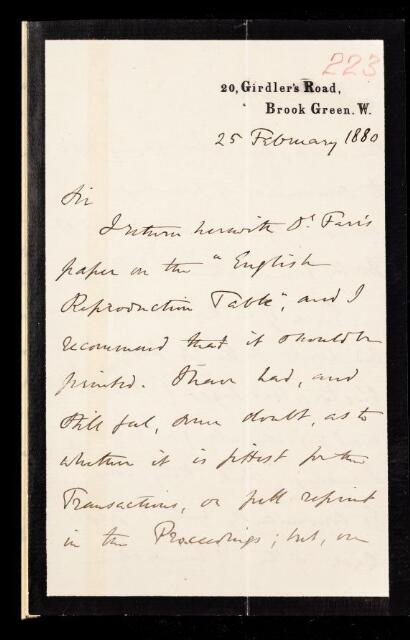 223
20, Girdler's Road,
Brook Green. W.
25 February 1880
Sir
I return herewith Dr. Farr's
paper on the "English
Reproduction Table", and I
recommend that it should be
printed. I have had, and
still feel, some doubt, as to
whether it is fittest for the
Transactions, or full reprint
in the Proceedings; but, on